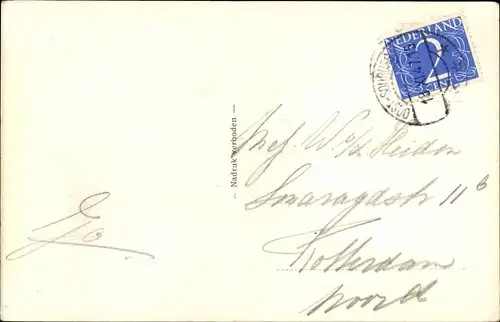 NEDERLAND
2
CENT
— Nadruk verboden —
Mej. W. v/d Heiden
Smaragdstr 11 b
Rotterdam
Noord
Go